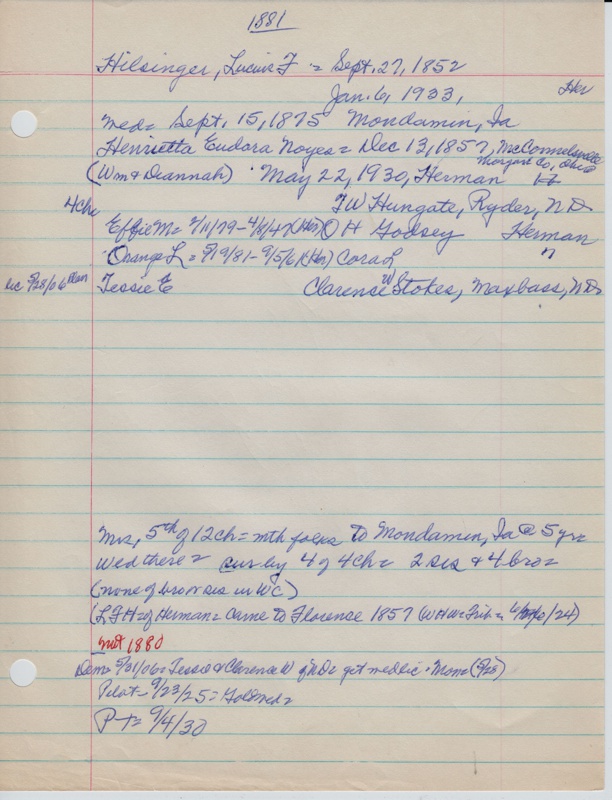 1881
Hilsinger, Lucius F = Sept. 27, 1852
Jan. 6, 1933, Her
med = Sept. 15, 1875 Mondamin, Ia
Henrietta Eudora Noyes = Dec 13, 1857, McConnelsville
Morgant Co, Ohio
(Wm & Diannah) May 22, 1930, Herman
4 Chi F W Hungate, Ryder, N D
Effie M = 2/11/79 - 4/8/47 (Her) O H Godsey Herman
Orange L = 5/19/81 - 9/5/61 (Her) Cora L "
Lic 5/28/06 Tessie E Clarence W Stokes, Maxbass, N D
Mrs, 5th of 12 ch = mth folks to Mondamin, Ia @ 5 yrs
wed there = sur by 4 of 4 ch = 2 sis & 4 bro =
(none of bro or sis in WC)
(L F H = of Herman = came to Florence 1857 (WHWC Trib =
not 1880
Dem = 5/31/06 = Tessie & Clarence W of N D = get med lic = Mon = (5/28)
Pilot - 9/23/25 = Gold Wed =
P-T = 9/4/30